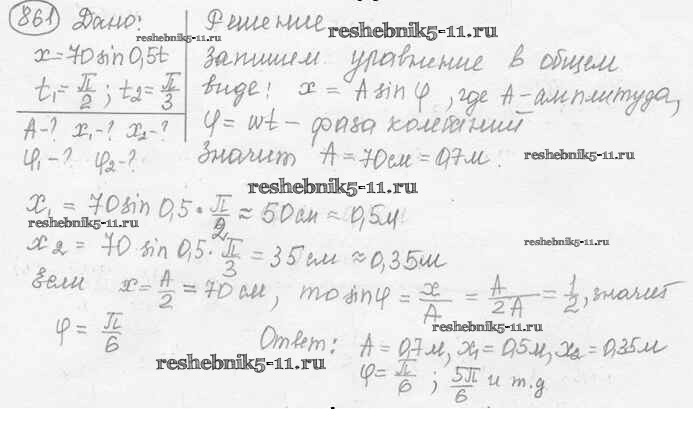 861 Дано:
x=70sin0,5t
t₁=π/2; t₂=π/3
A-? x₁-? x₂-?
φ₁-? φ₂-?
Решение
reshebnik5-11.ru
reshebnik5-11.ru
Запишем уравнение в общем
виде: x = A sin φ, где A-амплитуда,
φ = wt - фаза колебаний
Значит A = 70см = 0,7м.
reshebnik5-11.ru
reshebnik5-11.ru
x₁ = 70sin 0,5 · π/2 ≈ 50см ≈ 0,5м
reshebnik5-11.ru
x₂ = 70 sin 0,5 · π/3 = 35см ≈ 0,35м
reshebnik5-11.ru
Если x = A/2 = 70см, то sin φ = x/A = A/2A = 1/2, значит
φ = π/6
reshebnik5-11.ru
Ответ: A = 0,7м, x₁ = 0,5м, x₂ = 0,35м
φ = π/6; 5π/6 и т.д
reshebnik5-11.ru